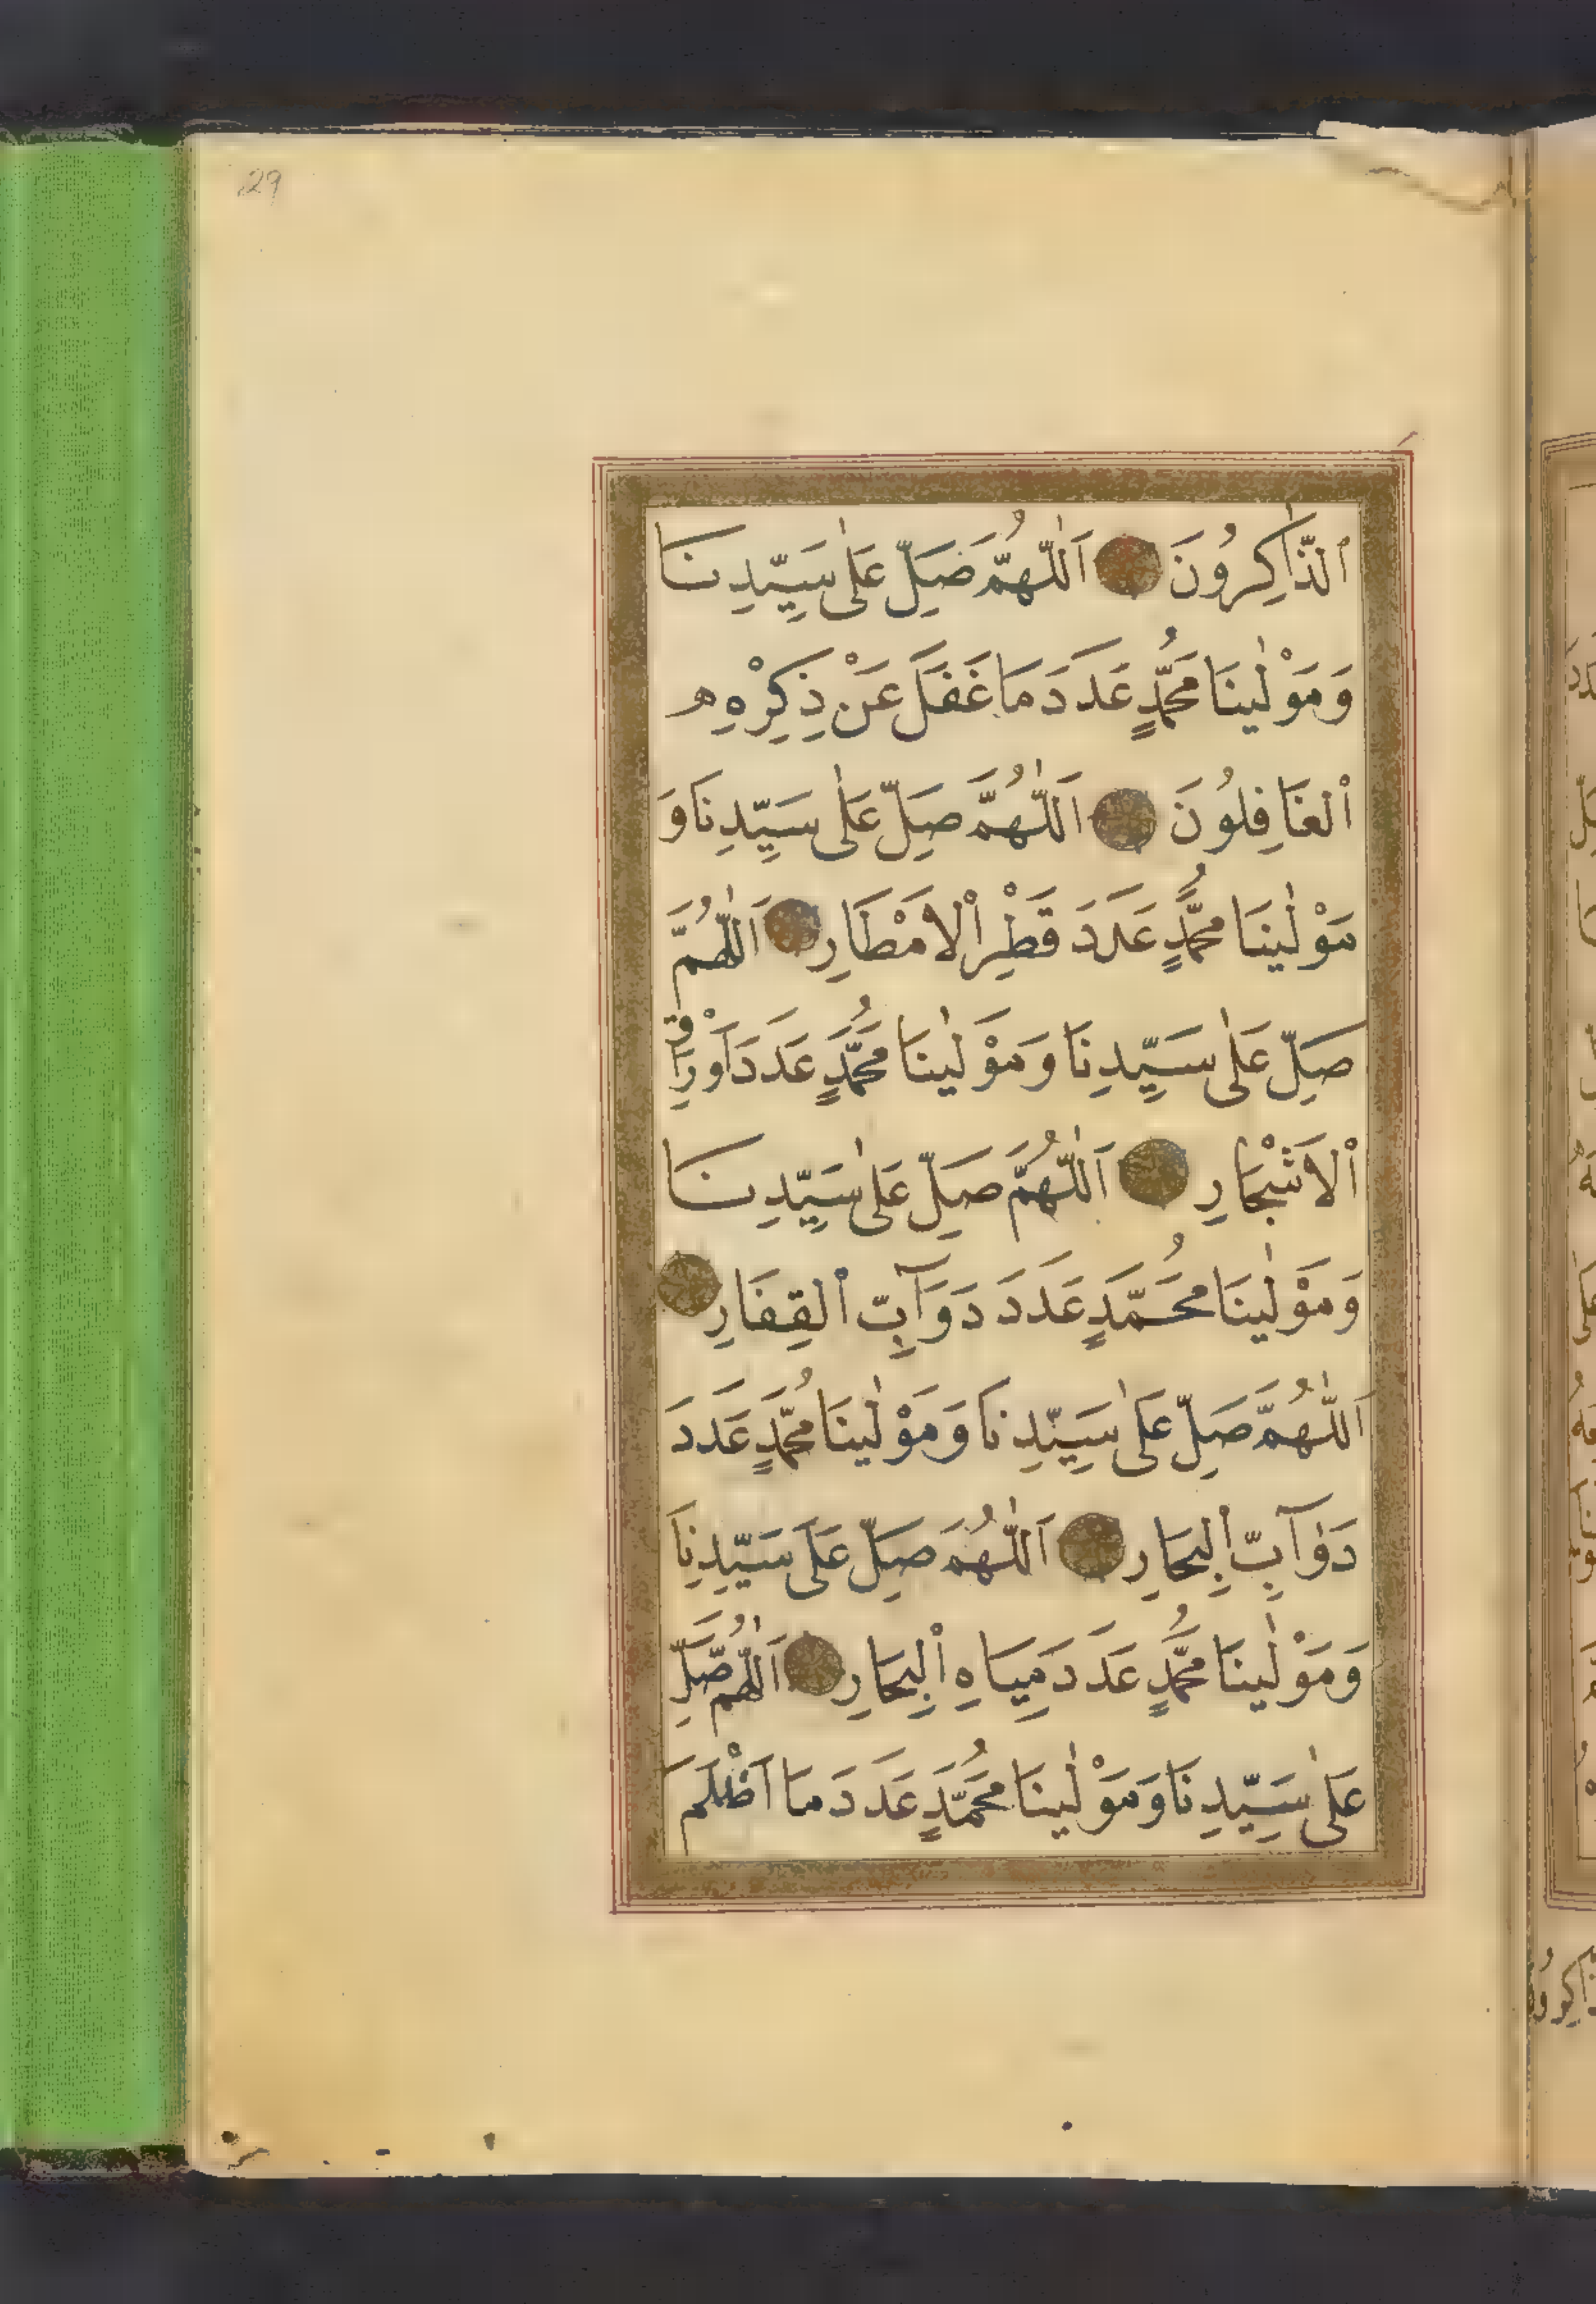 29
اَلذَّاكِرُونَ اَللّٰهُمَّ صَلِّ عَلٰى سَيِّدِنَا
وَمَوْلٰينَا مُحَمَّدٍ عَدَدَ مَا غَفَلَ عَنْ ذِكْرِهِ
اْلغَافِلُونَ اَللّٰهُمَّ صَلِّ عَلٰى سَيِّدِنَا وَ
مَوْلٰينَا مُحَمَّدٍ عَدَدَ قَطْرِ اْلاَمْطَارِ اَللّٰهُمَّ
صَلِّ عَلٰى سَيِّدِنَا وَمَوْلٰينَا مُحَمَّدٍ عَدَدَ اَوْرَاقِ
اْلاَشْجَارِ اَللّٰهُمَّ صَلِّ عَلٰى سَيِّدِنَا
وَمَوْلٰينَا مُحَمَّدٍ عَدَدَ دَوَآبِّ اْلقِفَارِ
اَللّٰهُمَّ صَلِّ عَلٰى سَيِّدِنَا وَمَوْلٰينَا مُحَمَّدٍ عَدَدَ
دَوَآبِّ اْلبِحَارِ اَللّٰهُمَّ صَلِّ عَلَى سَيِّدِنَا
وَمَوْلٰينَا مُحَمَّدٍ عَدَدَ مِيَاهِ اْلبِحَارِ اَللّٰهُمَّ صَلِّ
عَلٰى سَيِّدِنَا وَمَوْلٰينَا مُحَمَّدٍ عَدَدَ مَا اَظْلَمَ